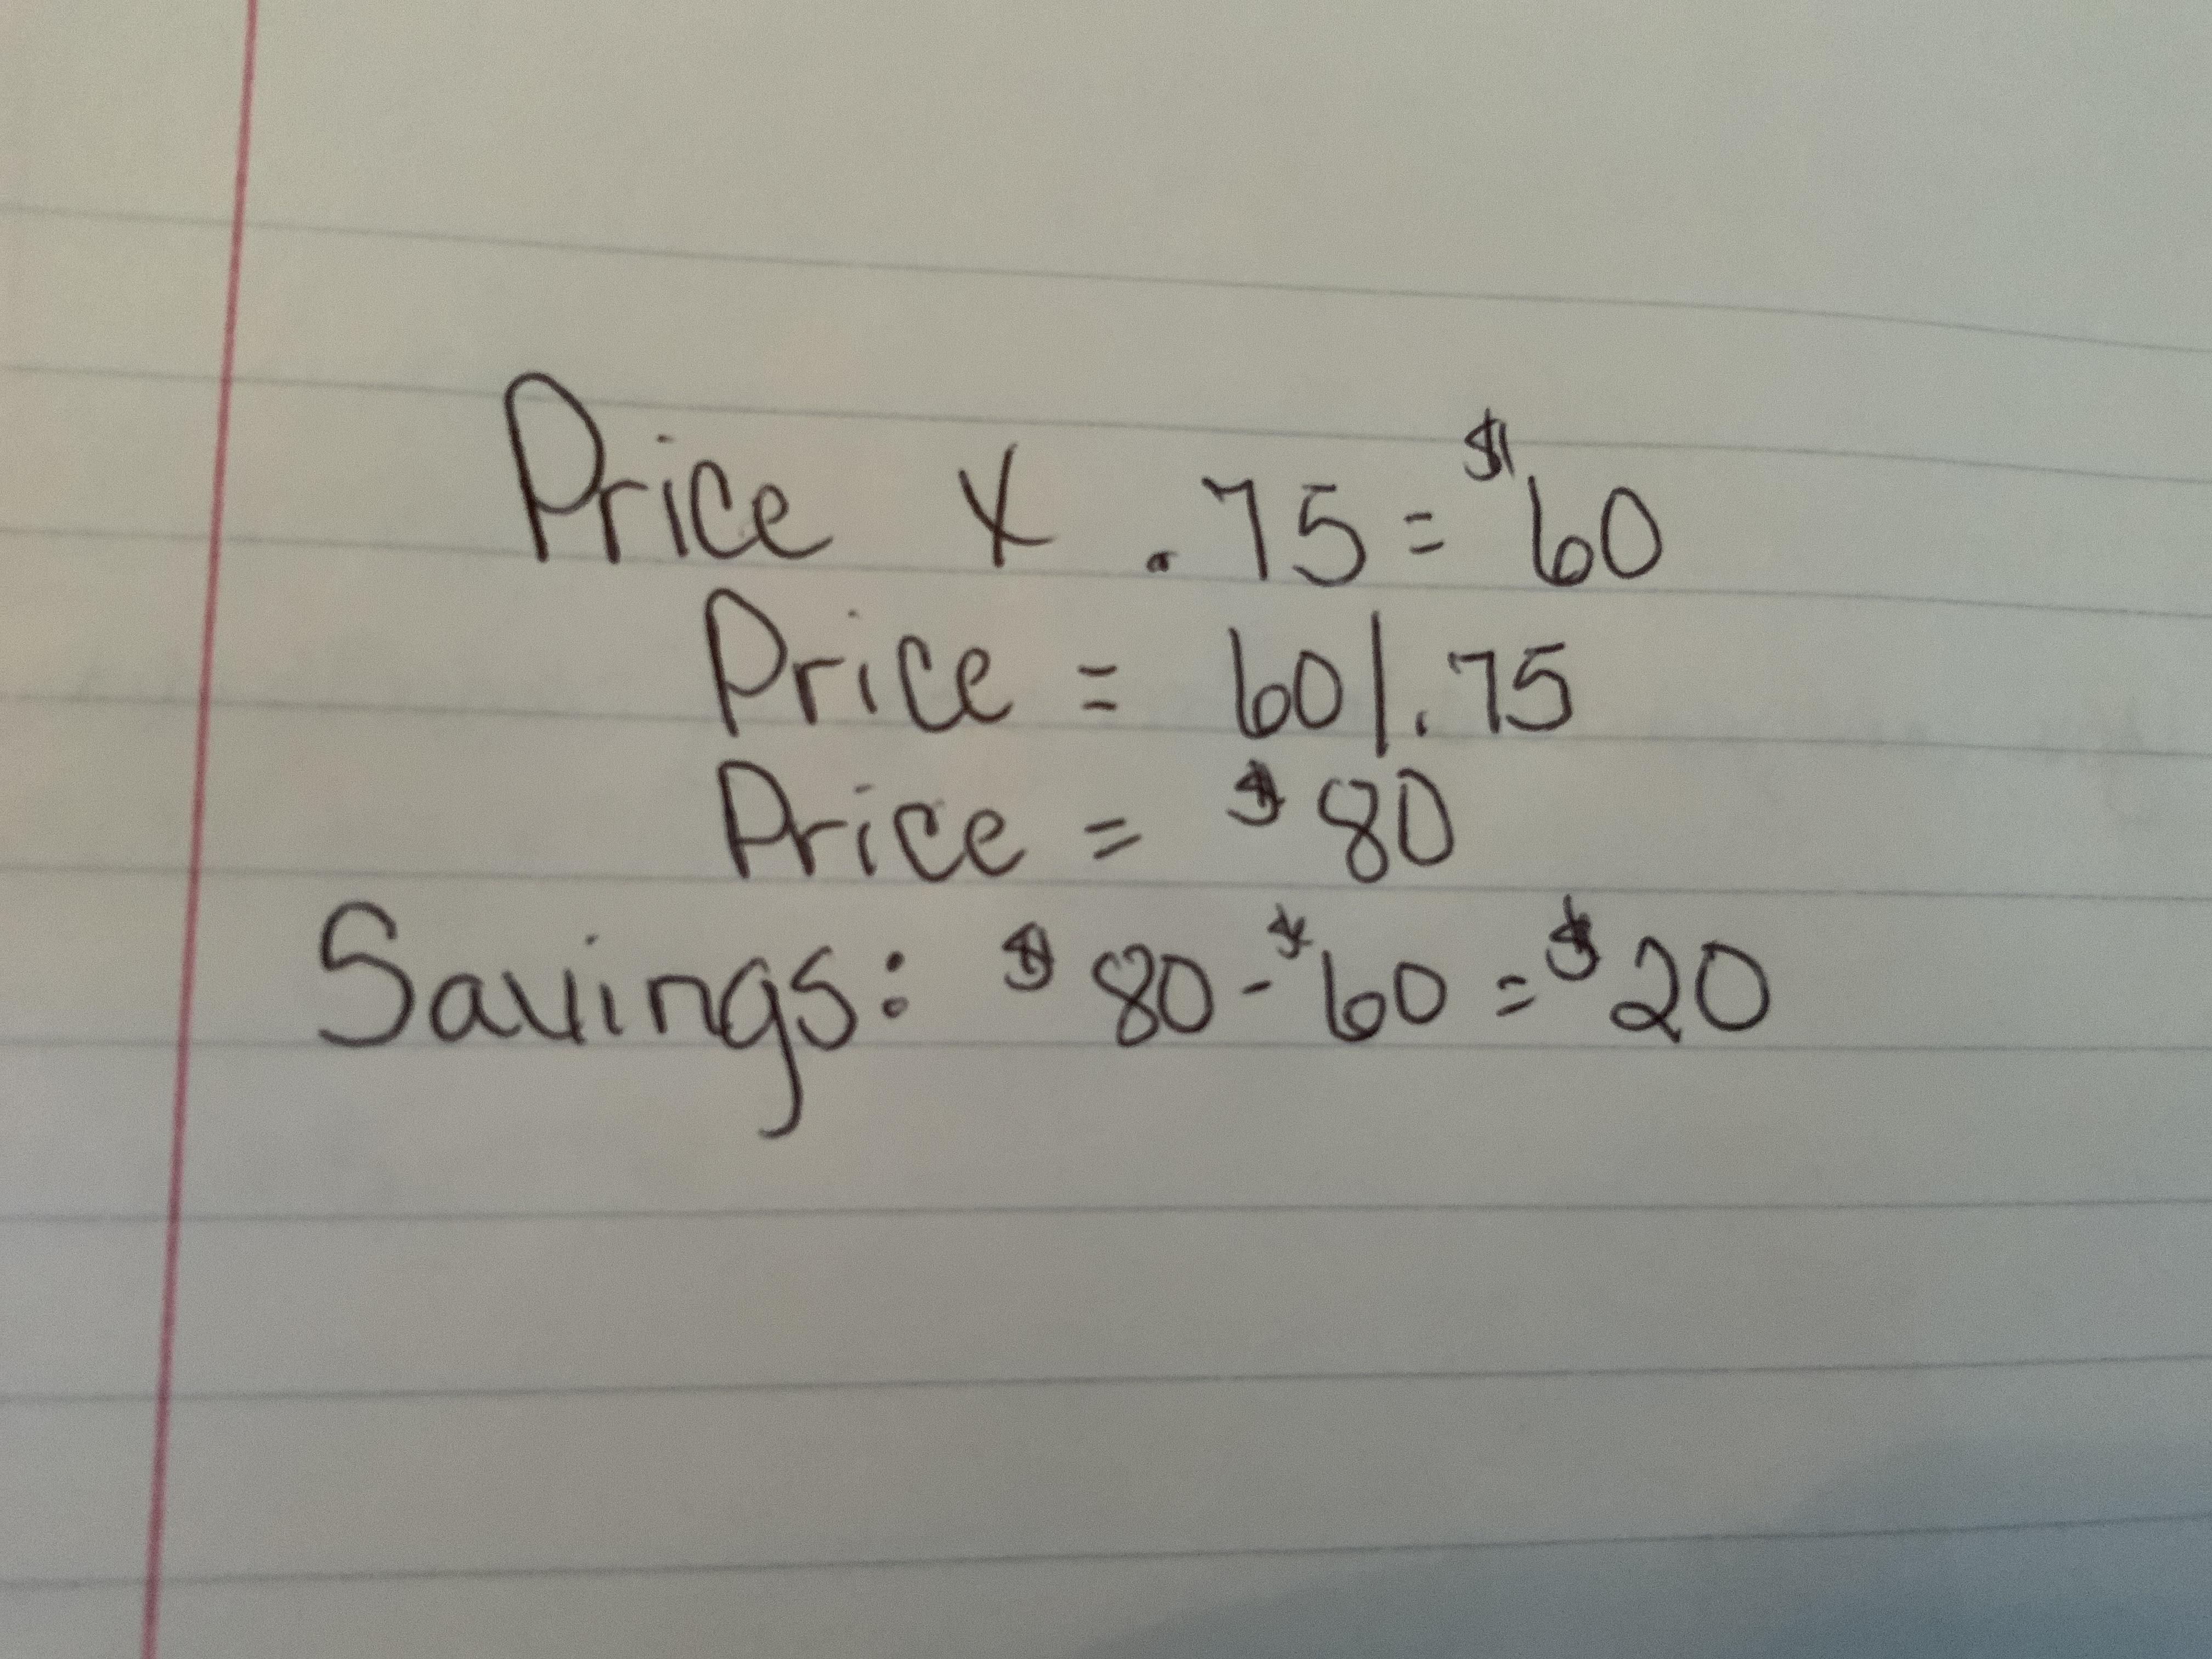 Price x .75 = $60
Price = 60/.75
Price = $80
Savings: $80 - $60 = $20